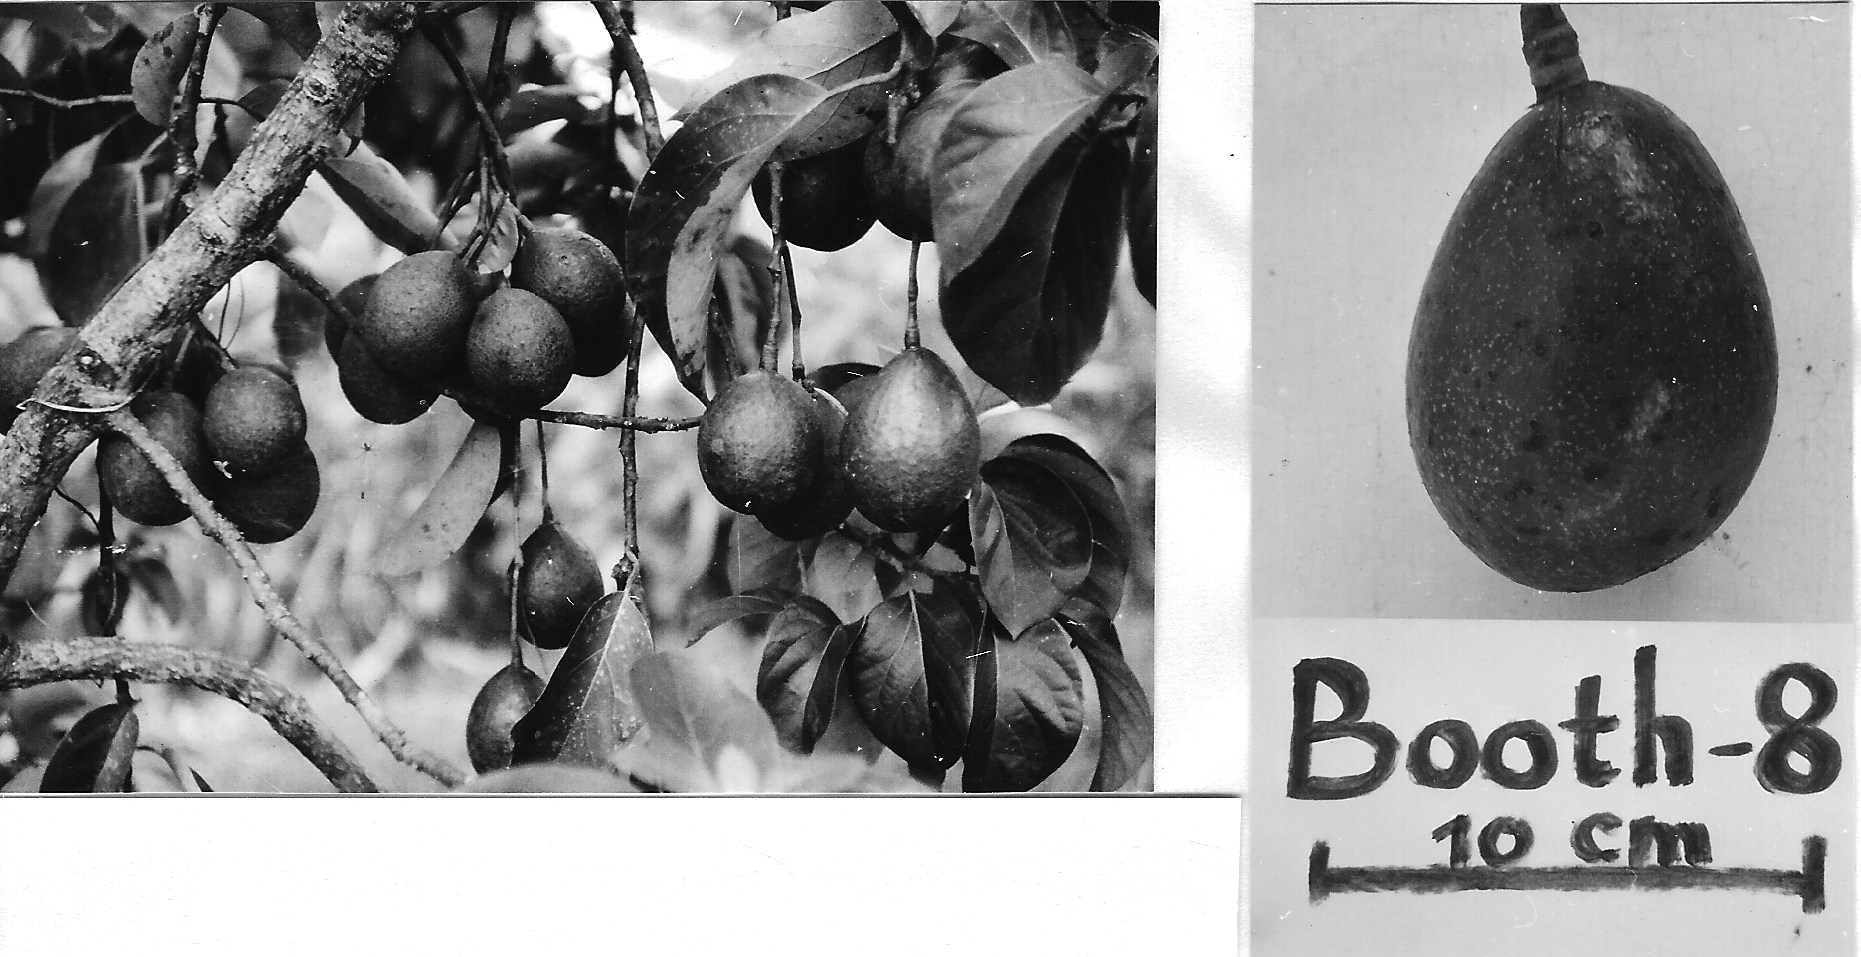 Booth-8
10 cm